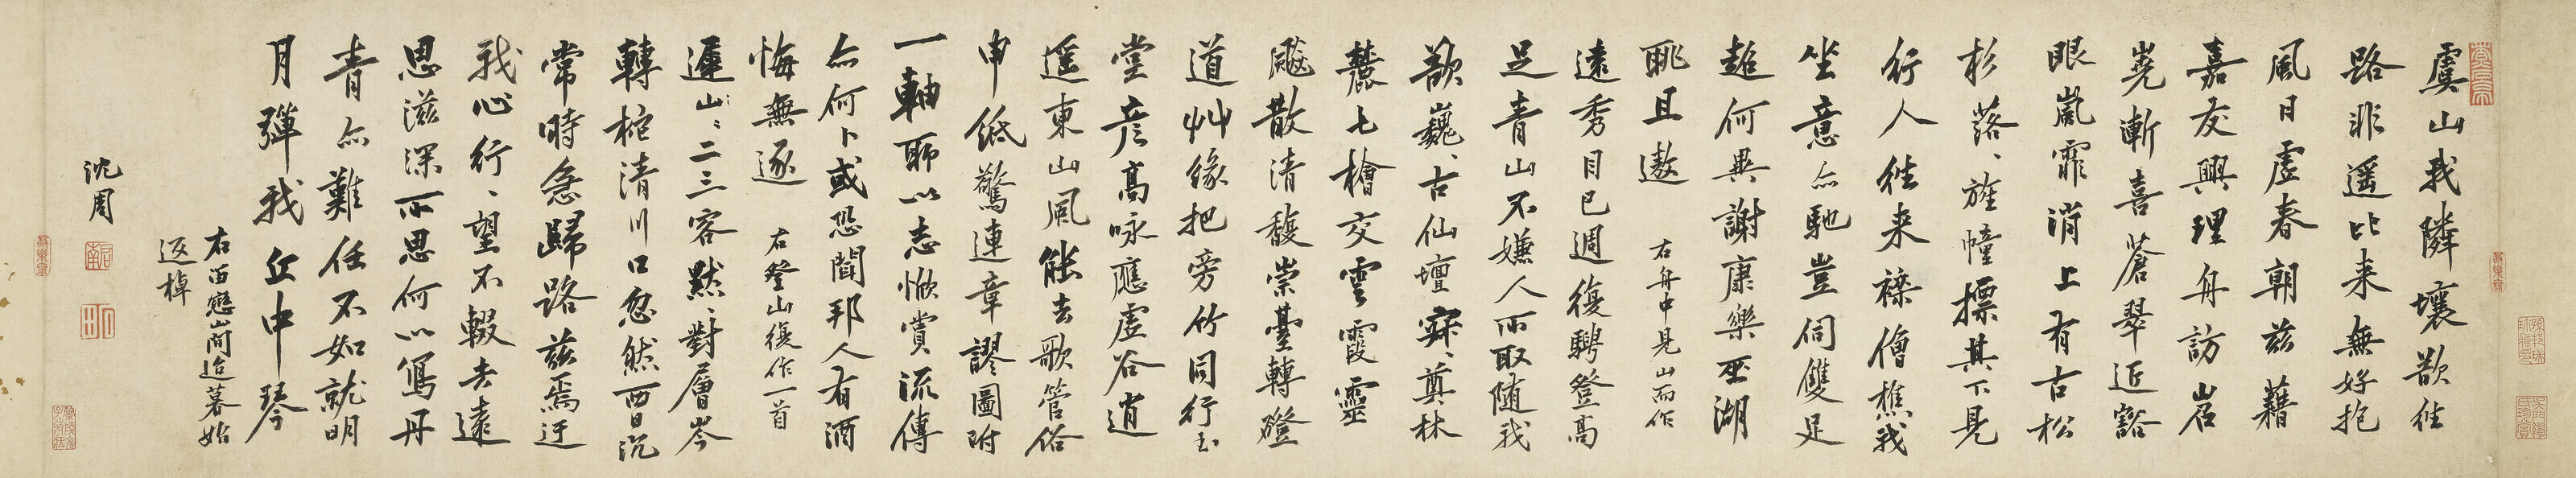 虞山我隣壤歆往
路非遥比来無好抱
風日虚春朝兹藉
嘉友興理舟訪岧
嶤漸喜蒼翠近豁
眼嵐霏消上有古松
杉落、旌幢摽其下見
行人往来襍僧樵我
坐意亦馳豈伺雙足
趫何異謝康樂巫湖
眺且遨 右舟中見山而作
遠秀目已週復騁登高
足青山不嫌人所取随我
歆巍、古仙壇寂、奠林
麓七檜交雲霞靈
飈散清馥崇臺轉磴
道艸緣把旁竹同行玉
堂彦高咏應虚谷逍
遥東山風能去歌管俗
申紙驚連章謬圖附
一軸聊以志愜賞流傳
亦何卜或恐聞邦人有酒
悔無逐 右登山復作一首
遲山、二三客默、對層岑
轉柁清川口忽然西日沉
常時急歸路兹焉迂
我心行、望不輟去遠
思滋深所思何以寫丹
青亦難任不如就明
月彈我丘中琴
右酉戀崗迨暮始
返棹
沈周